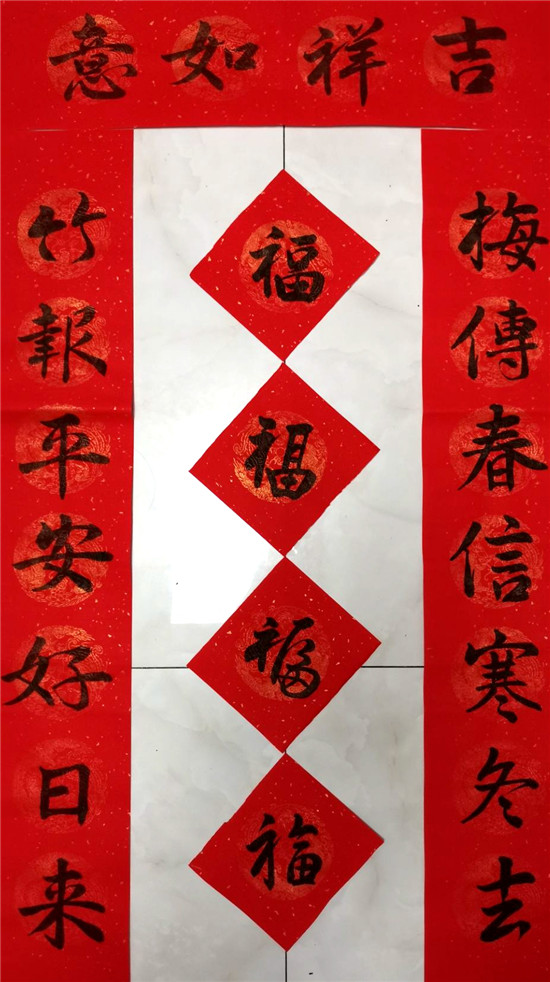 吉祥如意
梅傳春信寒冬去
竹報平安好日来
福
福
福
福